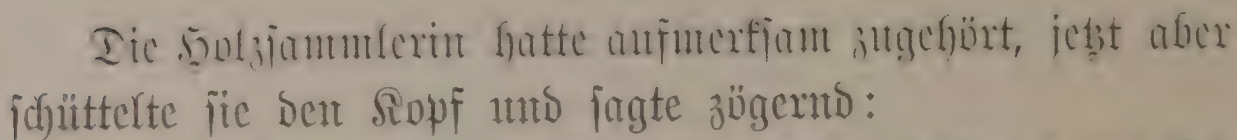 Die Holzſammlerin hatte aufmerkſam zugehört, jetzt aber
ſchüttelte ſie den Kopf und ſagte zögernd: